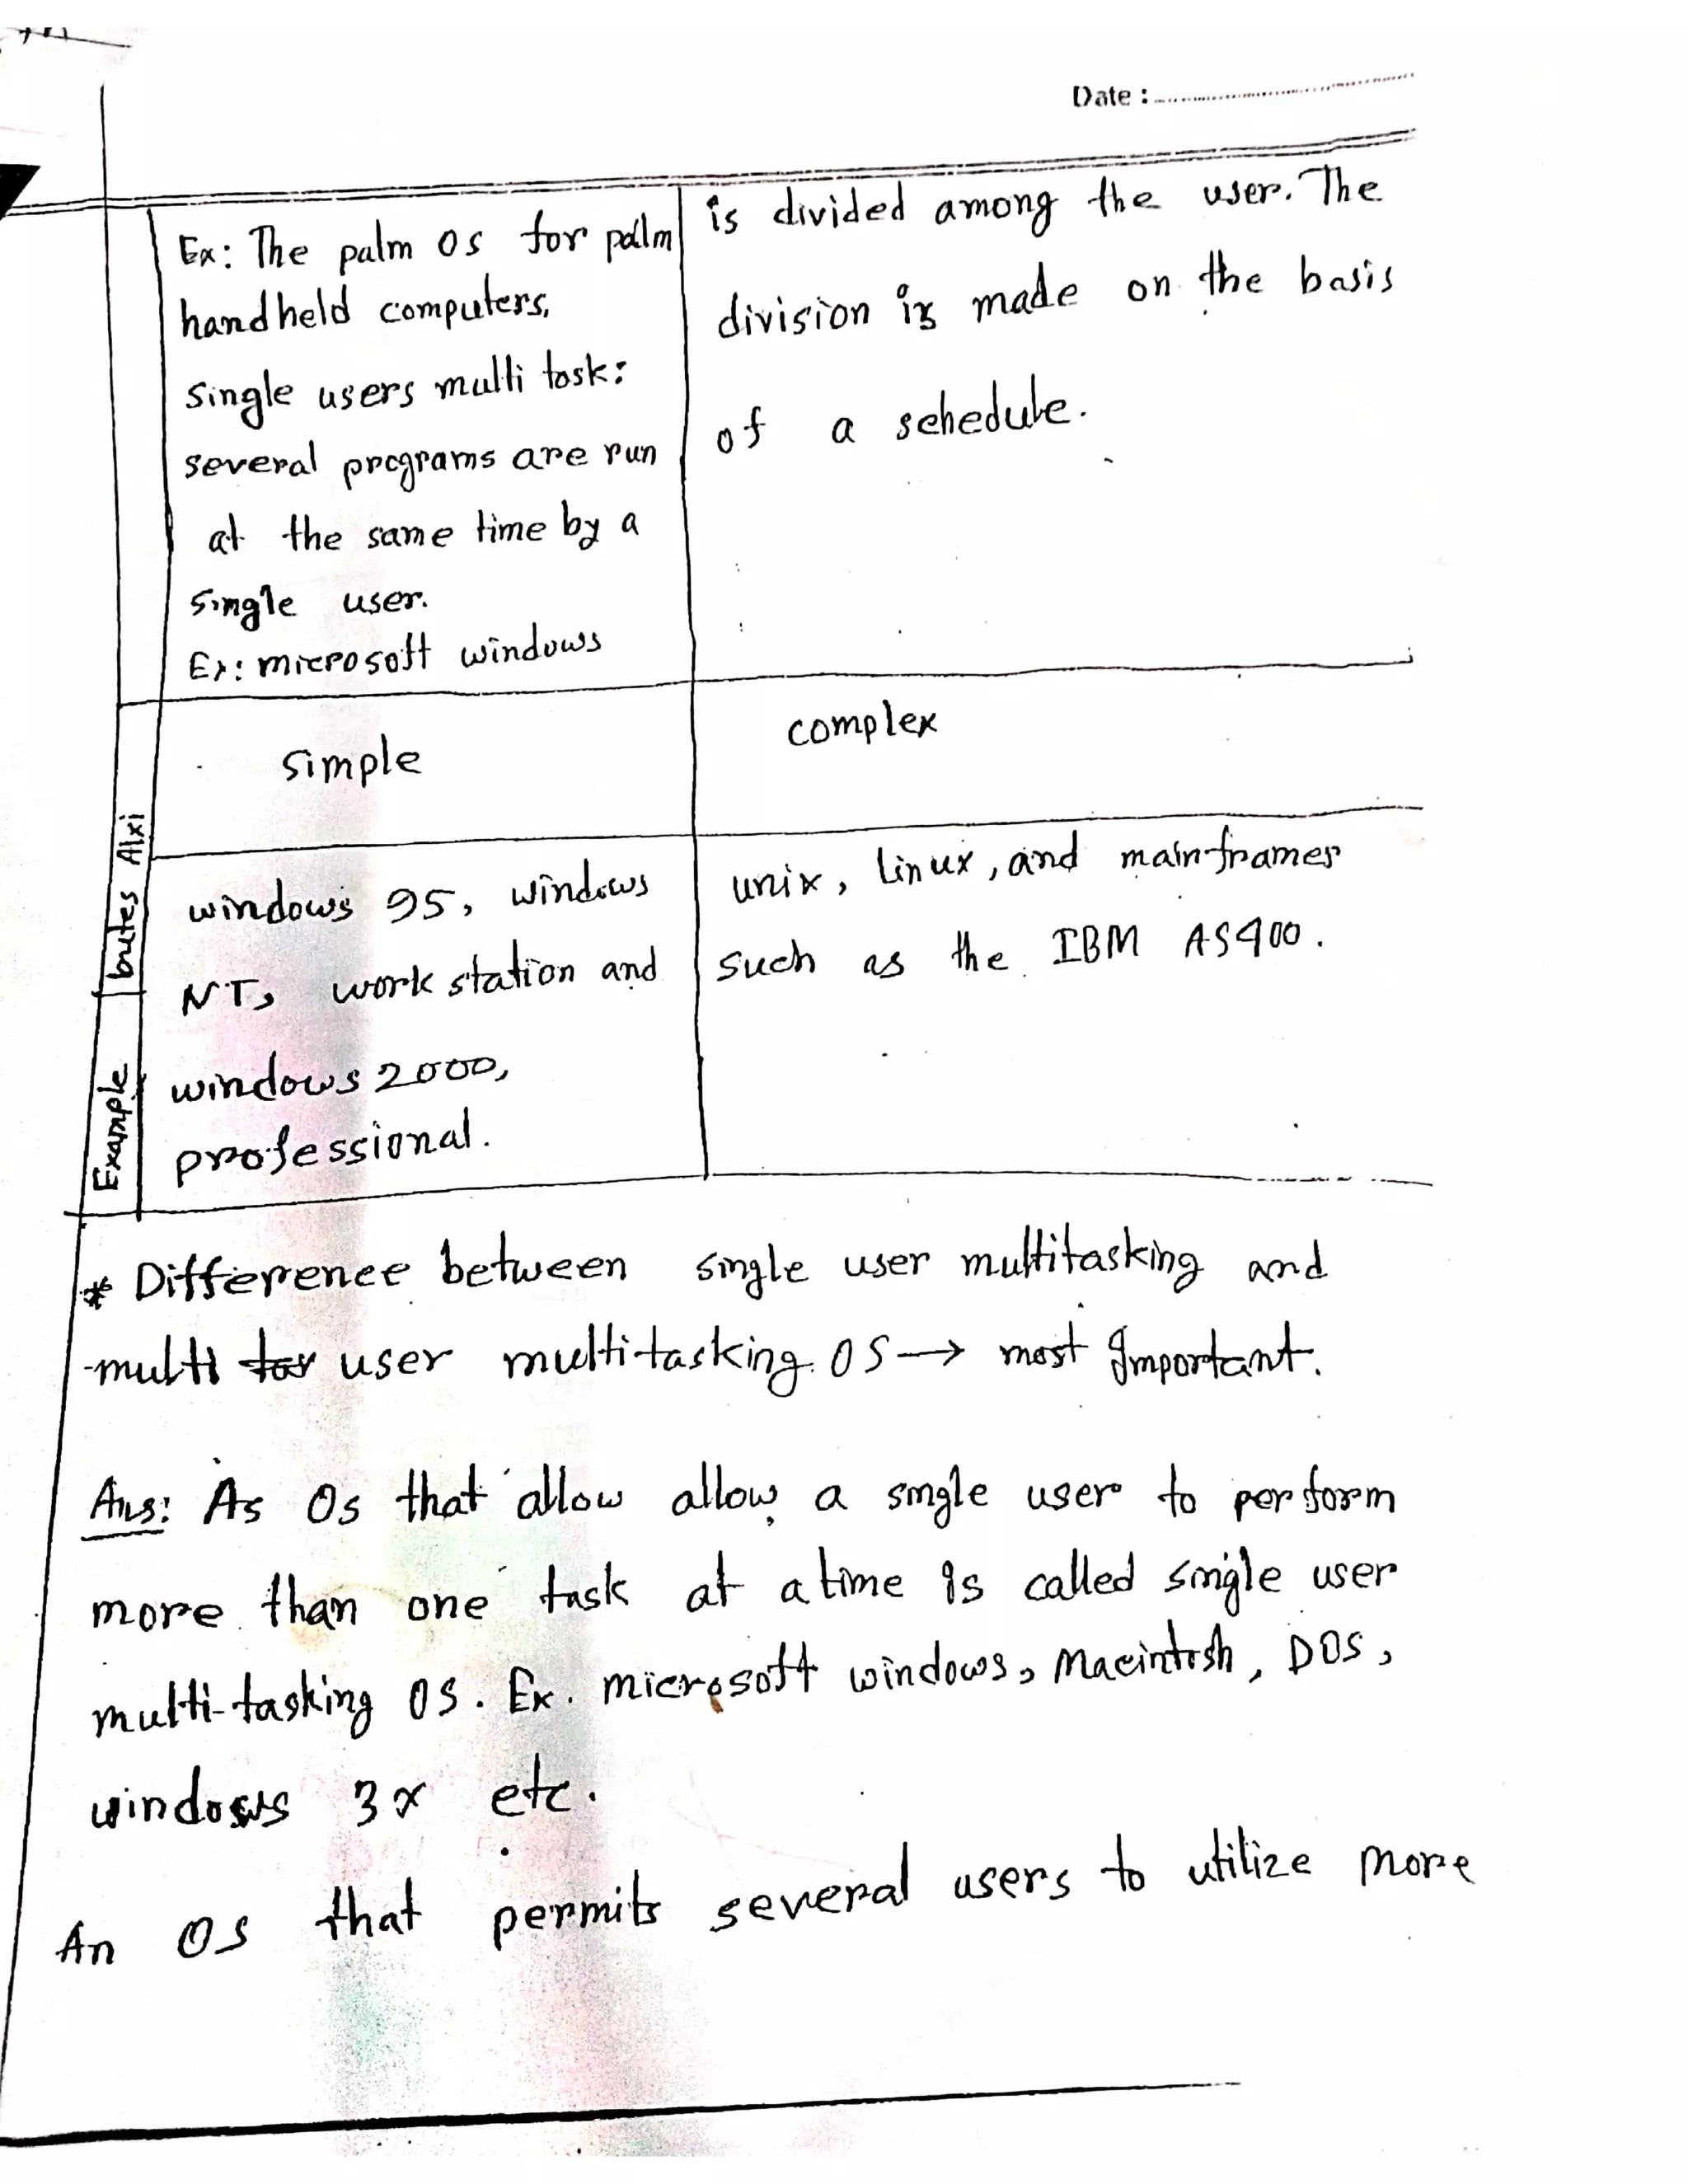 Date :
Ex: The palm OS for palm
handheld computers,
Single users multi task:
several programs are run
at the same time by a
single user.
Ex: microsoft windows
is divided among the user. The
division is made on the basis
of a schedule.
simple
complex
butes Alxi
windows 95, windows
NT, work station and
windows 2000,
professional.
unix, Linux, and mainframes
such as the IBM AS400.
Example
* Difference between single user multitasking and
multi user multitasking OS → most Important.
Ans: As Os that allow allow a single user to perform
more than one task at a time is called single user
multi-tasking OS. Ex. microsoft windows, Macintosh, DOS,
windows 3x etc.
An OS that permits several users to utilize more